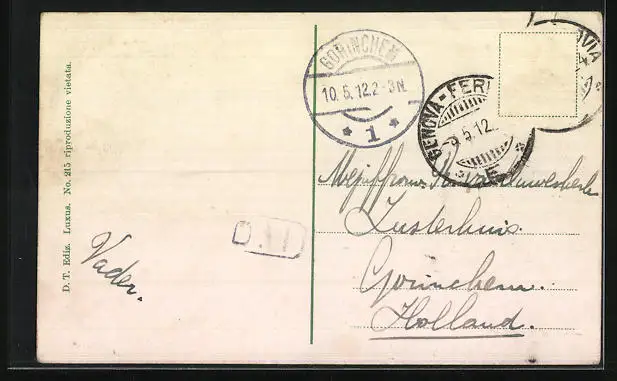 D. T. Ediz. Luxus. No. 215 riproduzione vietata.
GORINCHEM
10.5.12.2-3N.
* 1 *
GENOVA-FERR
5.12
Vader.
Mejuffrouw
Zusterhuis.
Gorinchem.
Holland.